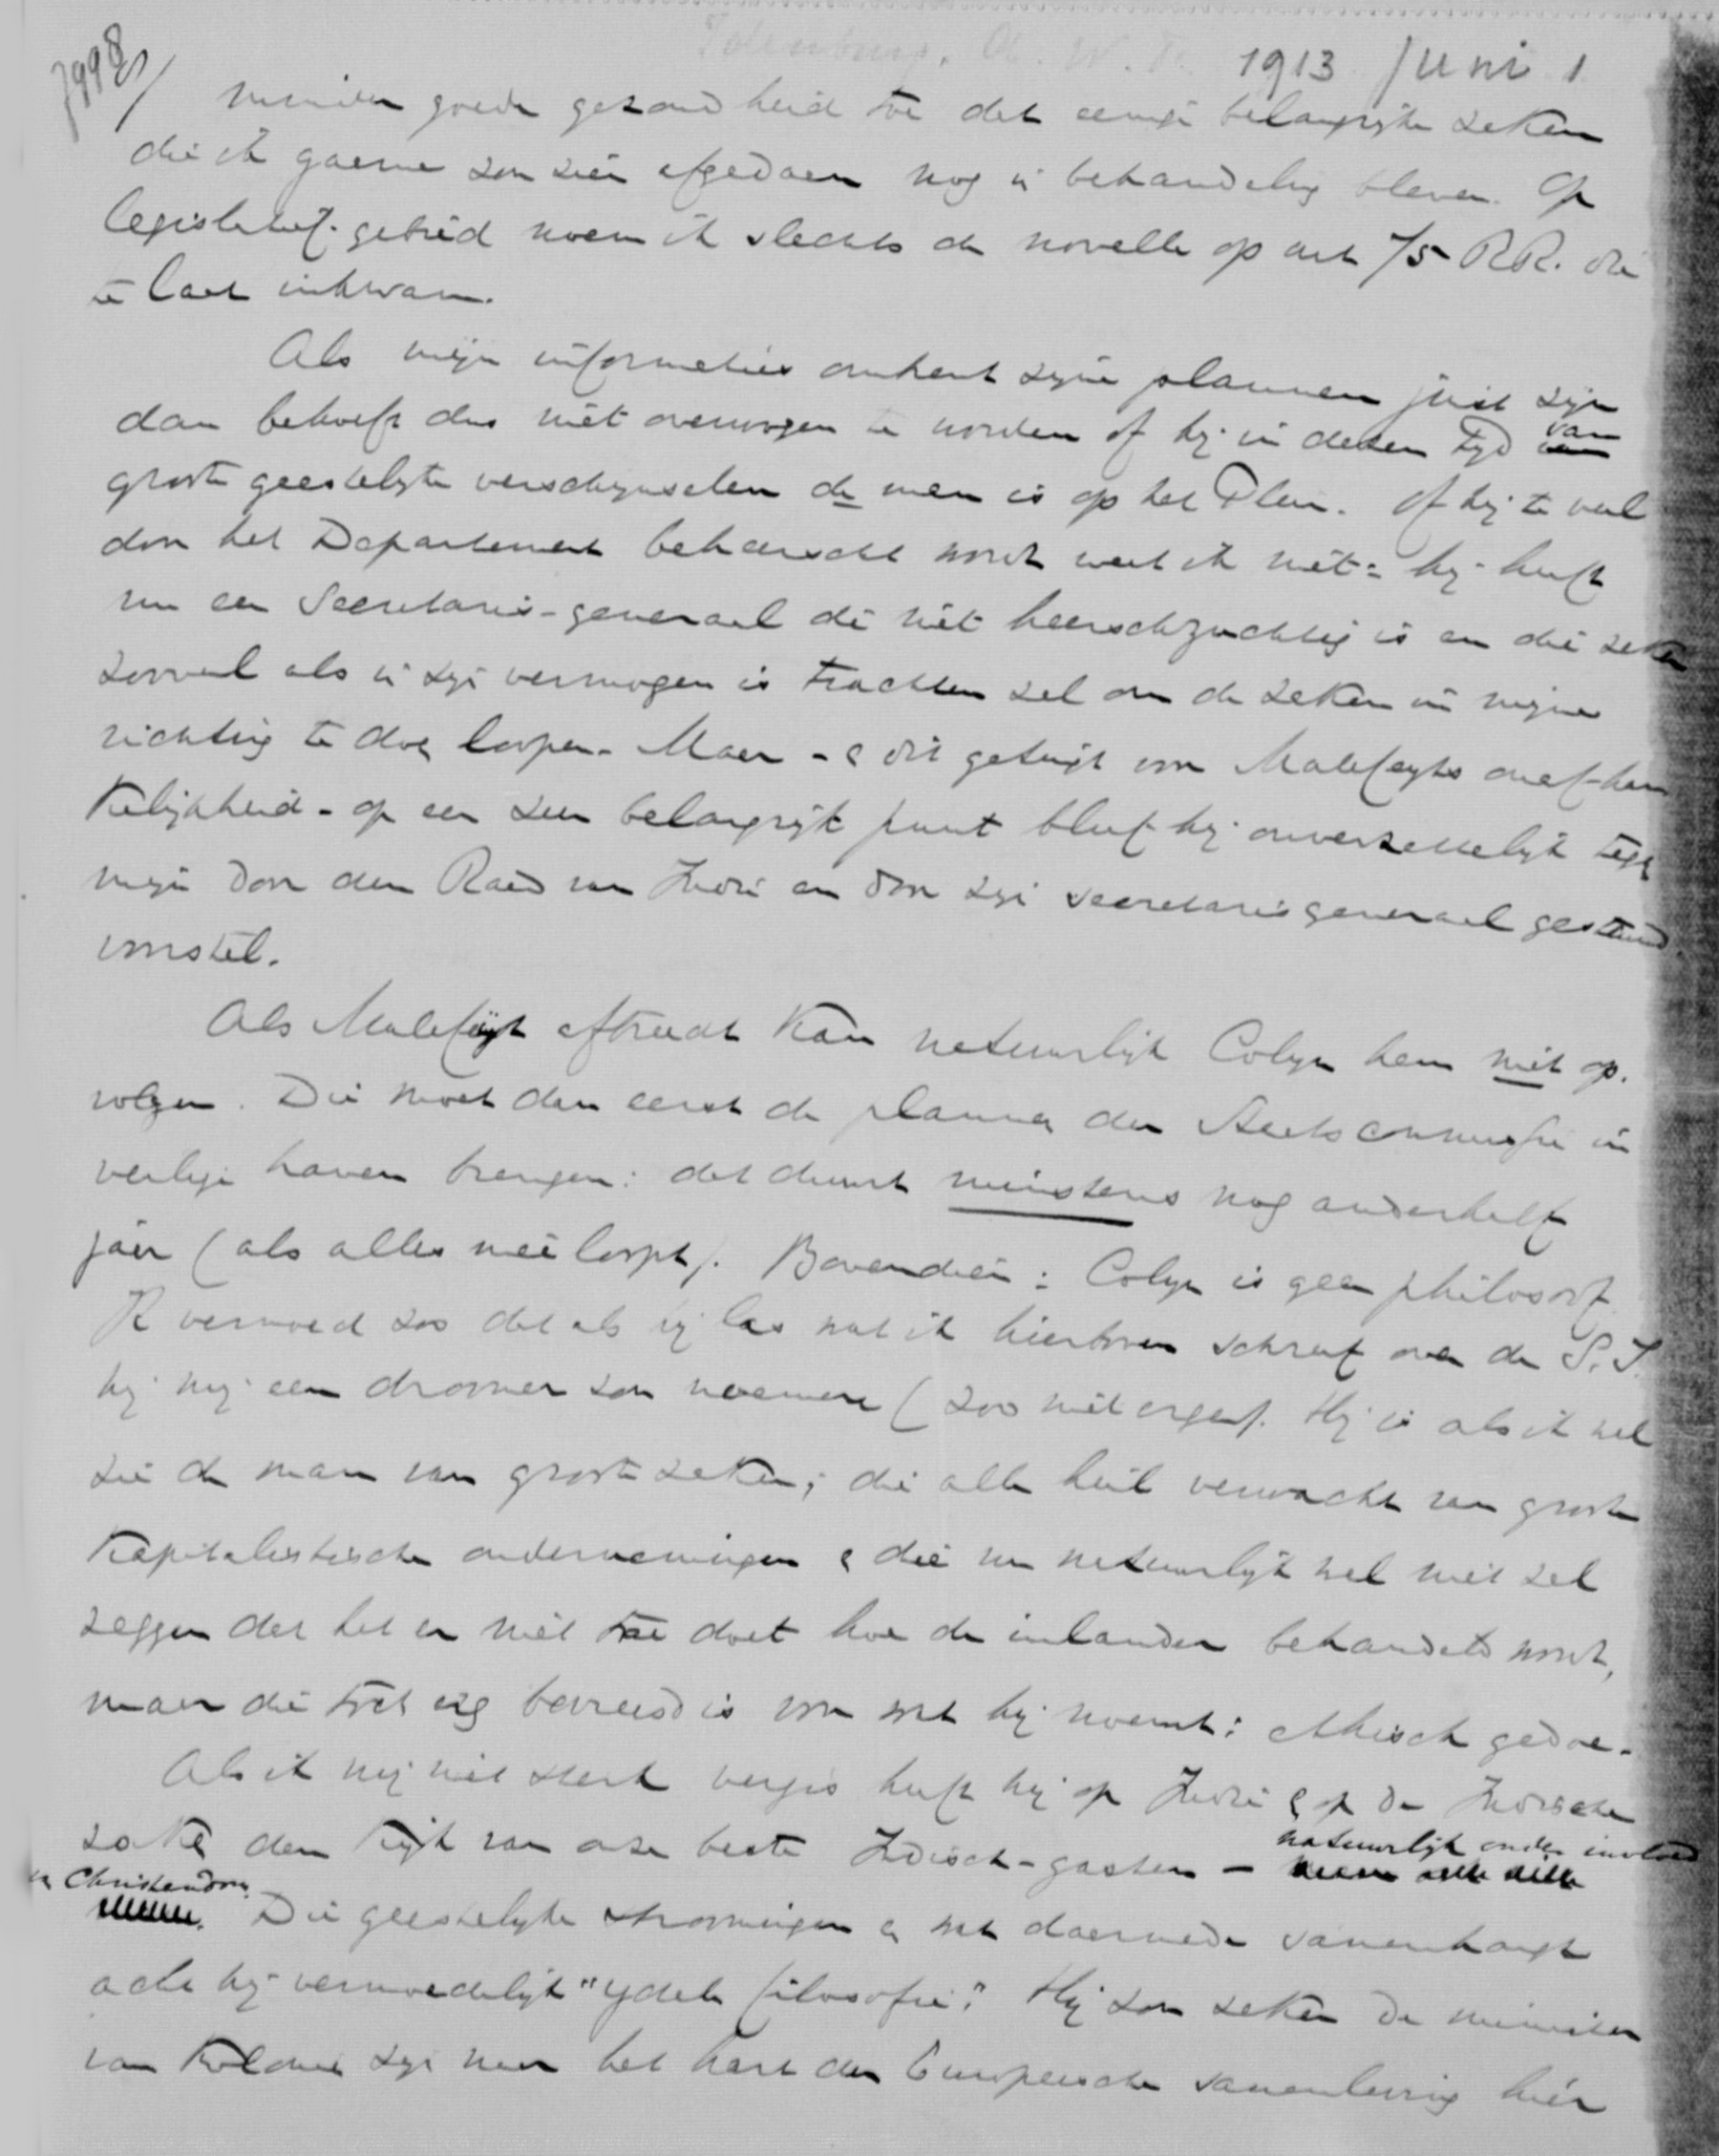 7998
Idenburg, A. W. F. 1913 Juni 1
minder goede gezondheid toe dat eenige belangrijke zaken
die ik gaerne zou zien afgedaen nog in behandeling bleven. Op
legislatief gebied noem ik slechts de novelle op art 75 RR. die
te laat inkwam.
Als mijn informaties omtrent zijne plannen juist zijn
dan behoeft dus niet overwogen te worden of hij in dezen tijd van
groote geestelijke verschijnselen de man is op het Plein. Of hij te veel
door het Departement beheerscht wordt weet ik niet: hij heeft
nu een Secretaris-generaal die niet heerschzuchtig is en die zeker
zooveel als in zijn vermogen is trachten zal om de zaken in mijne
richting te doen loopen. Maar - & dit getuigt voor Malefeyts onafhan
kelijkheid - op een zeer belangrijk punt bleef hij onverzettelijk tegen
mijn door den Raad van Indië en door zijn secretarisgeneraal gesteund
voorstel.
Als Malefijt aftreedt kan natuurlijk Colijn hem niet op-
volgen. Die moet dan eerst de plannen der Staatscommissie in
veilige haven brengen: dat duurt minstens nog anderhalf
jaar (als alles meeloopt). Bovendien: Colijn is geen philosoof.
Ik vermoed zoo dat als hij las wat ik hierboven schreef over de S. I.
hij mij een droomer zou noemen (zoo niet erger). Hij is als ik wel
zie de man van groote zaken; die alle heil verwacht van groote
kapitalistische ondernemingen & die nu natuurlijk wel niet zal
zeggen dat het er niet toe doet hoe de inlander behandeld wordt,
maar die toch erg bevreesd is voor wat hij noemt: ethisch gedoe.
Als ik mij niet sterk vergis heeft hij op Indië & op de Indische
zaken den kijk van onze beste Indisch-gasten - natuurlijk onder invloed
v. Christendom. Die geestelijke stroomingen & wat daarmede samenhangt
acht hij vermoedelijk "ydele filosofie". Hij zou zeker de minister
van Koloniën zijn naar het hart der Europeesche samenleving hier